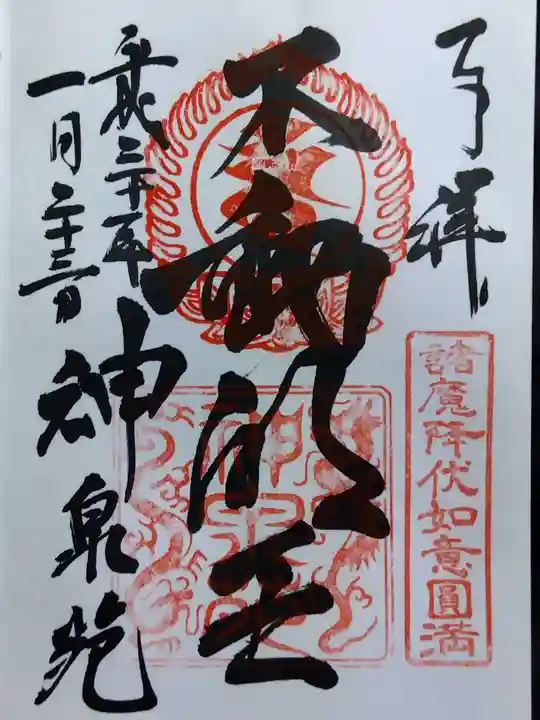 奉拝
諸魔降伏如意圓満
不動明王
平成三十年
一月二十三日
神泉苑